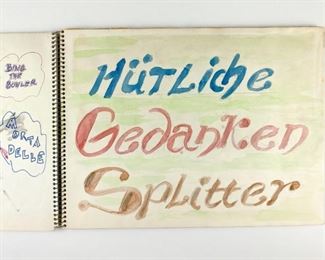 BING
THE
BOWLER
A
MORTA
DELLE
HÜTLiche
Gedanken
Splitter